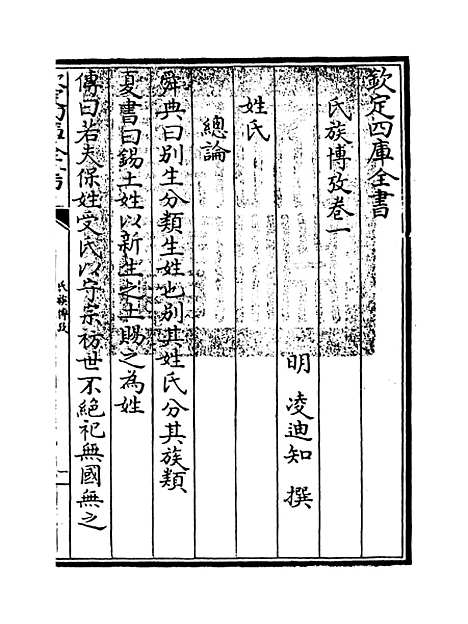 欽定四庫全書
氏族博攷卷一
明 凌迪知 撰
姓氏
總論
舜典曰别生分類生姓也别其姓氏分其族類
夏書曰錫土姓以所生之土賜之為姓
傳曰若夫保姓受氏以守宗祊世不絕祀無國無之
氏族博攷